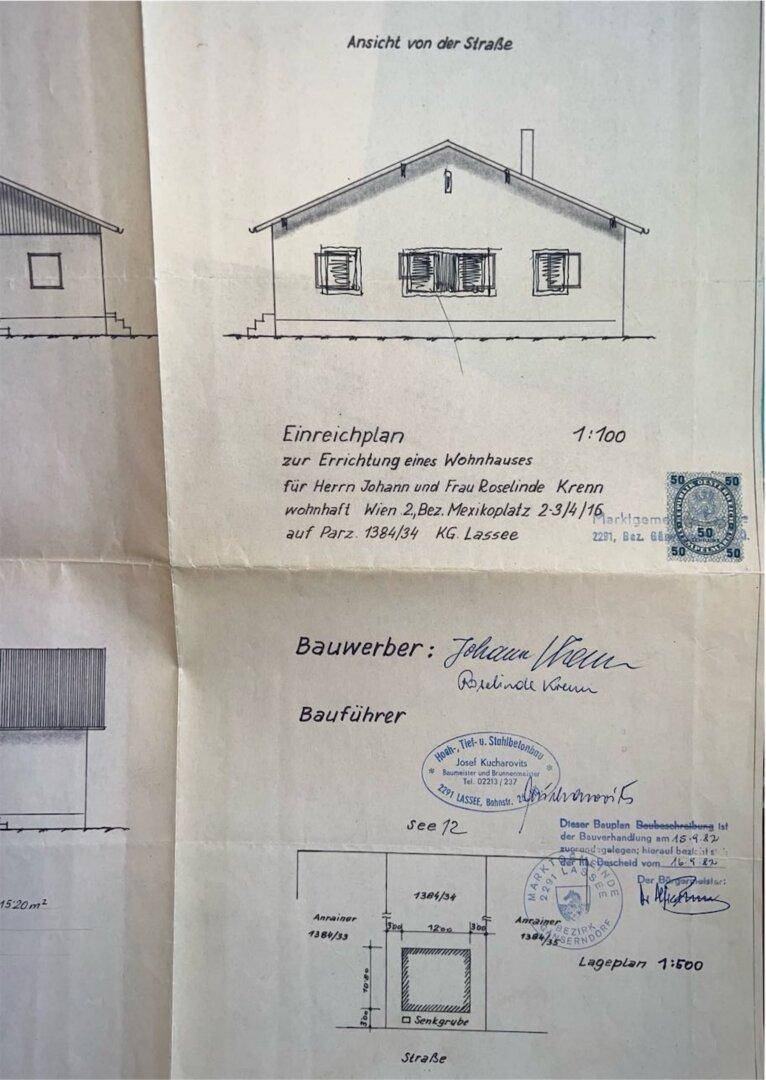 Ansicht von der Straße
Einreichplan 1:100
zur Errichtung eines Wohnhauses
für Herrn Johann und Frau Roselinde Krenn
wohnhaft Wien 2., Bez. Mexikoplatz 2-3/4/16
auf Parz. 1384/34 KG. Lassee
50 50
50
50 50
Marktgeme
2291, Bez. Gän
Bauwerber: Johann Krenn
Roselinde Krenn
Bauführer
Hoch-, Tief- u. Stahlbetonbau
Josef Kucharovits
Baumeister und Brunnenmeister
Tel. 02213/237
2291 LASSEE, Bahnstr.
Kucharovits
See 12
Dieser Bauplan Baubeschreibung ist
der Bauverhandlung am 15.9.82
zugrundegelegen; hierauf bezieht sich
der Bescheid vom 16.9.82
Der Bürgermeister:
MARKTGEMEINDE
2291 LASSEE
BEZIRK
GÄNSERNDORF
1384/34
Anrainer
1384/33
Anrainer
1384/35
300 1200 300
1080
300
Senkgrube
Straße
Lageplan 1:500
1520 m²